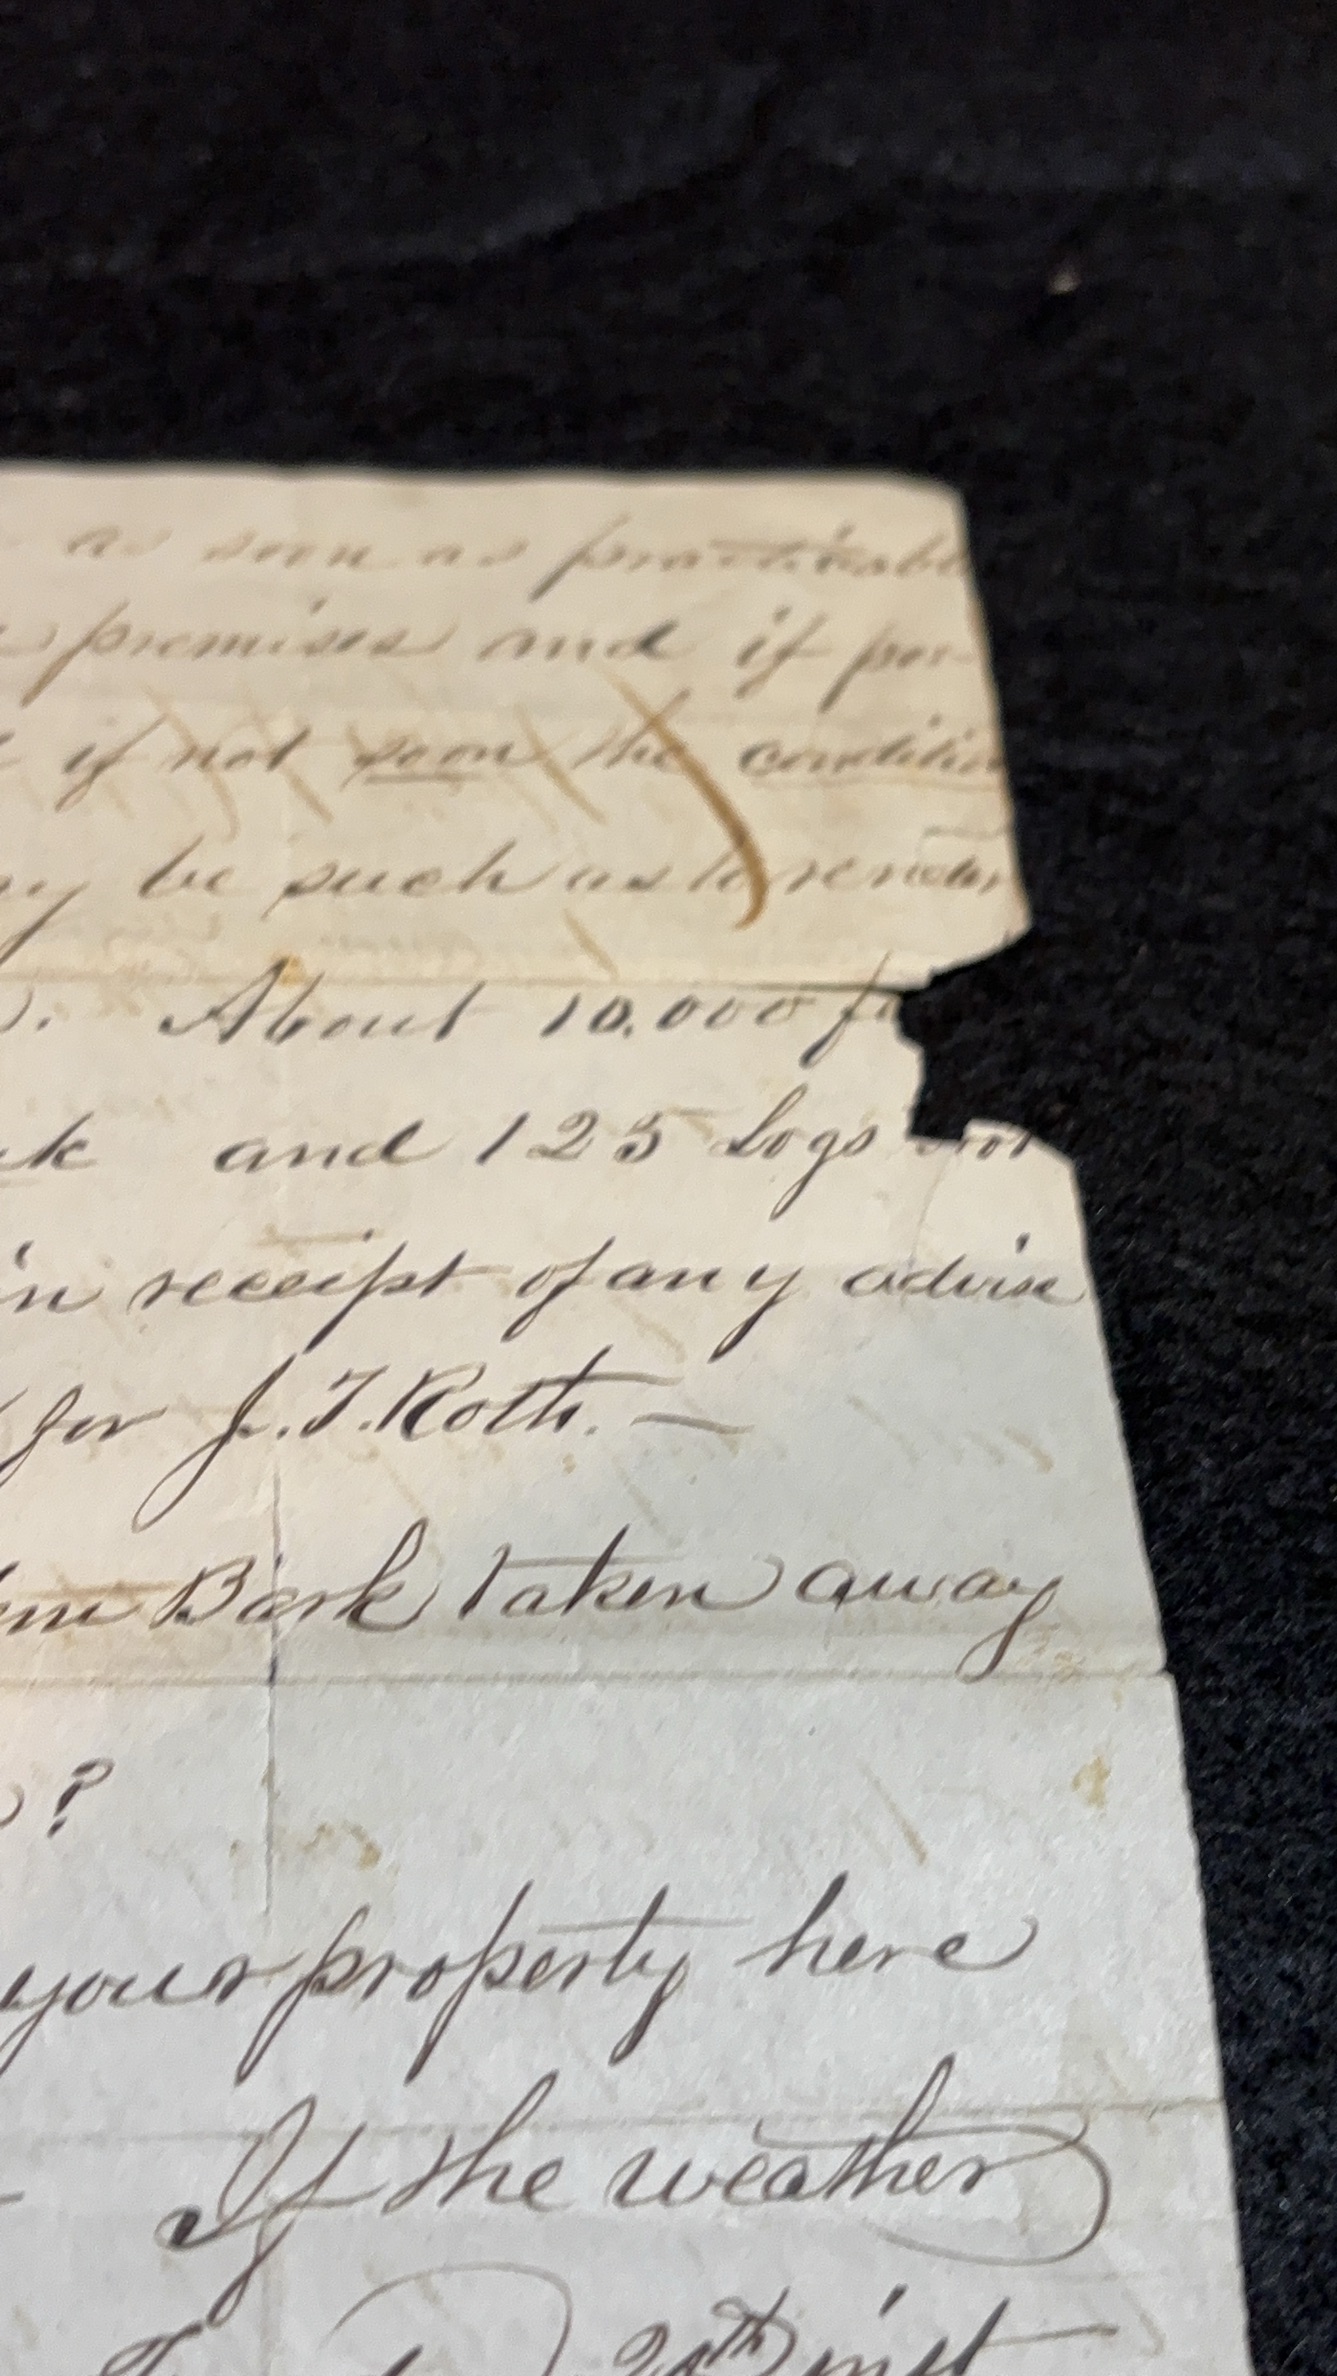 as soon as practicabl
premises and if pos-
if not soon the condition
be such as to render
About 10.000 f
and 125 Logs
in receipt of any advise
for J. T. Roth. —
Bark taken away
?
your property here
If the weather
20th inst